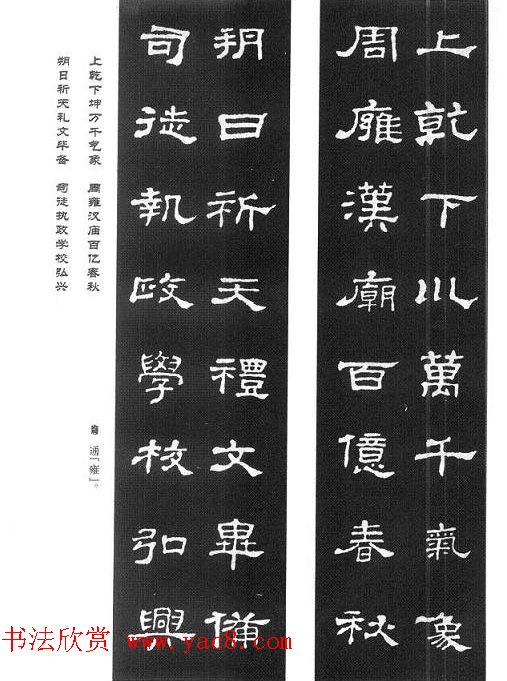 上乾下巛萬千氣象
周廱漢廟百億春秋
朔日祈天禮文畢備
司徒執政學校弘興
上乾下坤万千气象　周雍汉庙百亿春秋
朔日祈天礼文毕备　司徒执政学校弘兴
通「雍」。
书法欣赏 www.yac8.com